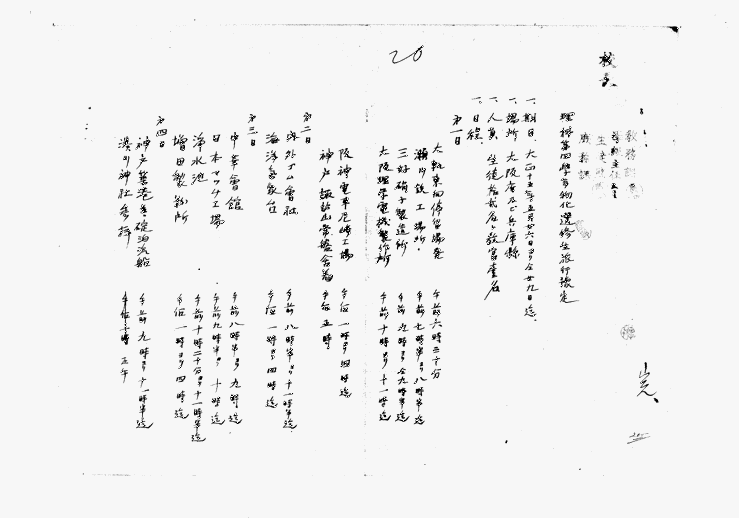 20
校長
教務課
理科第四學年物化選修生旅行豫定
一、期日、大正十五年五月廿六日ヨリ仝廿九日迄、
一、場所 大阪府及ビ兵庫縣
一、人員 生徒 教官壹名
一、日程、
第一日
大軌東向停留場発 午前六時三十分
瀬川鉄工場所、 午前七時半ヨリ八時半迄
三好硝子製造所 午前九時ヨリ仝九時半迄
大阪理学電機製作所 午前十時ヨリ十一時迄
阪神電車尼崎工場 午后一時ヨリ四時迄
神戸諏訪山常盤舎着 午后五時
第二日
内外ゴム會社 午前八時半ヨリ十一時半迄
海洋気象台 午后一時ヨリ四時迄
第三日
中華會館 午前八時半ヨリ九時迄
日本マッチ工場 午前九時半ヨリ十時迄
浄水池 午前十時二十分ヨリ十一時半迄
増田製粉所 午后一時ヨリ四時迄
第四日
神戸築港 碇泊汽船 午前九時ヨリ十一時半迄
湊川神社参拝 正午